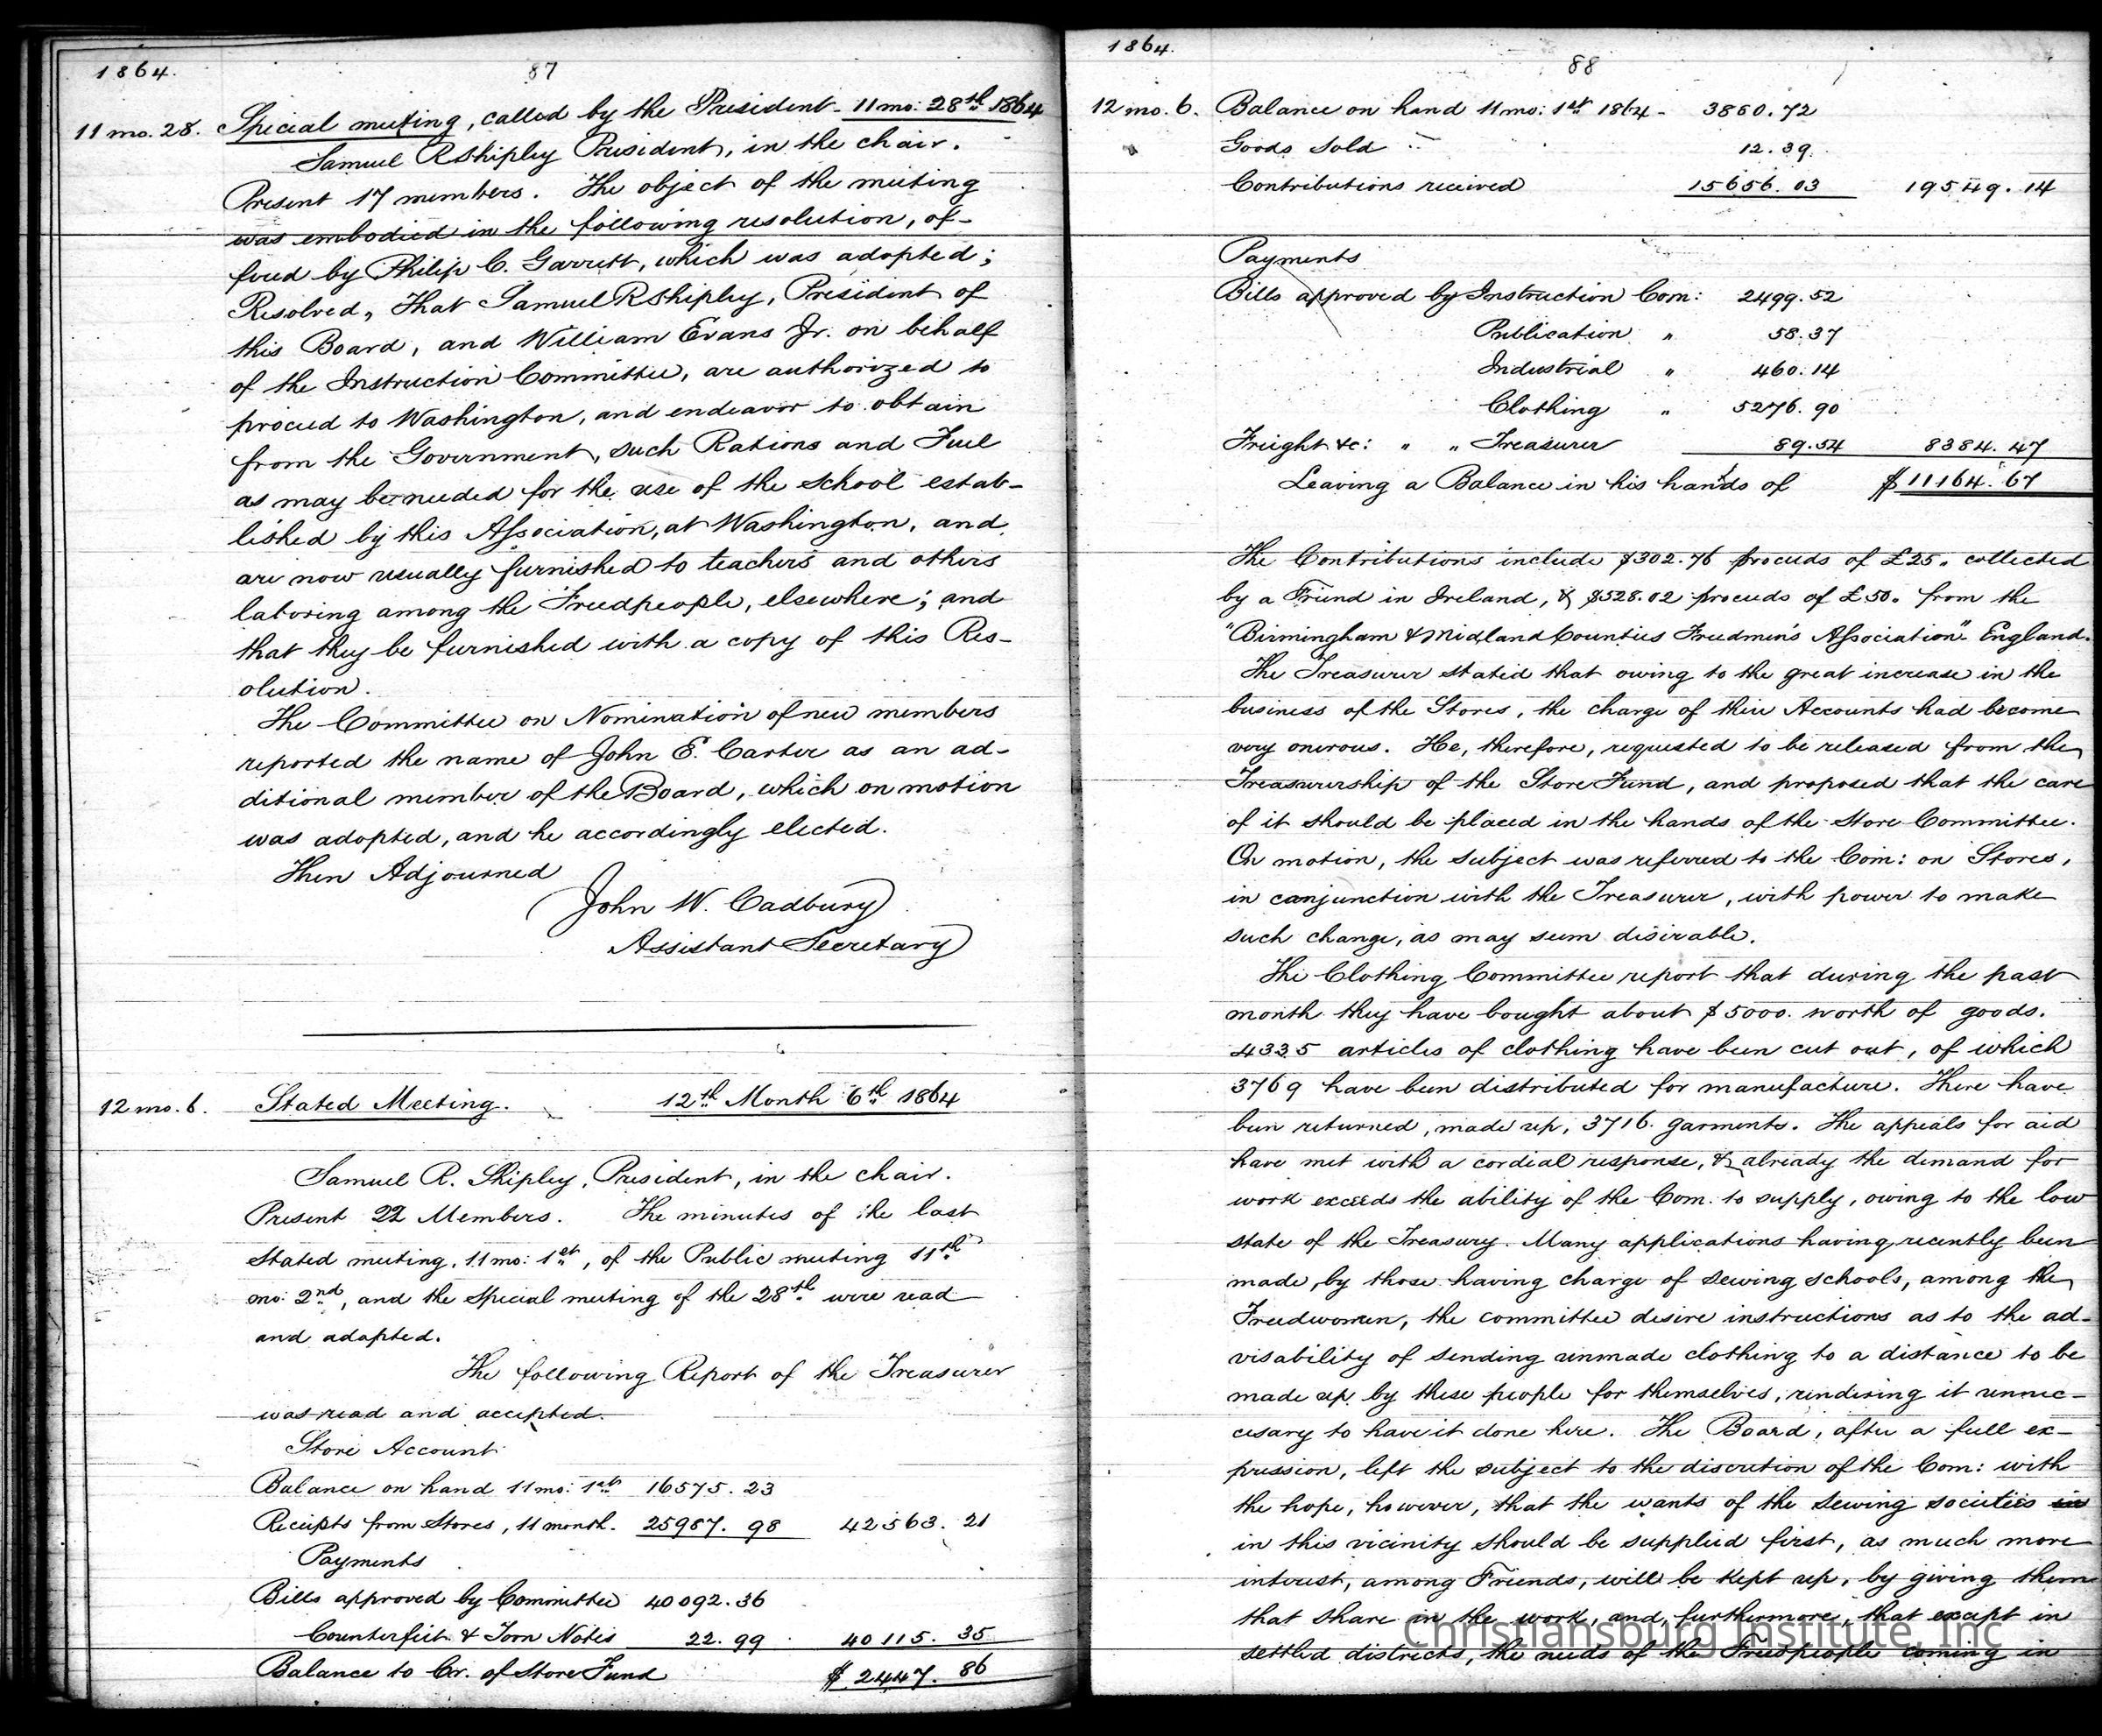 1864.
87
11 mo. 28. Special meeting, called by the President - 11 mo: 28th 1864
Samuel R Shipley President, in the chair.
Present 17 members. The object of the meeting
was embodied in the following resolution, of-
fered by Philip C. Garrett, which was adopted;
Resolved, That Samuel R Shipley, President of
this Board, and William Evans Jr. on behalf
of the Instruction Committee, are authorized to
proceed to Washington, and endeavor to obtain
from the Government, such Rations and Fuel
as may be needed for the use of the school estab-
lished by this Association, at Washington, and
are now usually furnished to teachers and others
laboring among the Freedpeople, elsewhere; and
that they be furnished with a copy of this Res-
olution.
The Committee on Nomination of new members
reported the name of John E. Carter as an ad-
ditional member of the Board, which on motion
was adopted, and he accordingly elected.
Then Adjourned
John W. Cadbury
Assistant Secretary
12 mo. 6. Stated Meeting. 12th Month 6th 1864
Samuel R. Shipley, President, in the chair.
Present 22 Members. The minutes of the last
Stated meeting, 11 mo: 1st, of the Public meeting 11th
mo: 2nd, and the Special meeting of the 28th were read
and adopted.
The following Report of the Treasurer
was read and accepted.
Store Account
Balance on hand 11 mo: 1st 16575.23
Receipts from Stores, 11 month. 25987.98 42563.21
Payments
Bills approved by Committee 40092.36
Counterfeit & Torn Notes 22.99 40115.35
Balance to Cr. of Store Fund $ 2447.86
1864.
88
12 mo. 6. Balance on hand 11 mo: 1st 1864 - 3880.72
Goods Sold 12.39
Contributions received 15656.03 19549.14
Payments
Bills approved by Instruction Com: 2499.52
Publication " 58.37
Industrial " 460.14
Clothing " 5276.90
Freight &c: " " Treasurer 89.54 8384.47
Leaving a Balance in his hands of $ 11164.67
The Contributions include $302.76 proceeds of £25. collected
by a Friend in Ireland, & $528.02 proceeds of £50. from the
"Birmingham & Midland Counties Freedmen's Association" England.
The Treasurer stated that owing to the great increase in the
business of the Stores, the charge of their Accounts had become
very onerous. He, therefore, requested to be released from the
Treasurership of the Store Fund, and proposed that the care
of it should be placed in the hands of the Store Committee.
On motion, the subject was referred to the Com: on Stores,
in conjunction with the Treasurer, with power to make
such change, as may seem desirable.
The Clothing Committee report that during the past
month they have bought about $5000. worth of goods.
4335 articles of clothing have been cut out, of which
3769 have been distributed for manufacture. There have
been returned, made up, 3716 garments. The appeals for aid
have met with a cordial response, & already the demand for
work exceeds the ability of the Com. to supply, owing to the low
state of the Treasury. Many applications having recently been
made, by those having charge of sewing schools, among the
Freedwomen, the committee desire instructions as to the ad-
visability of sending unmade clothing to a distance to be
made up by these people for themselves, rendering it unnec-
cesary to have it done here. The Board, after a full ex-
pression, left the subject to the discretion of the Com: with
the hope, however, that the wants of the sewing societies in
in this vicinity should be supplied first, as much more
interest, among Friends, will be kept up, by giving them
that share in the work, and, furthermore, that except in
settled districts, the needs of the Freedpeople coming in
Christiansburg Institute, Inc